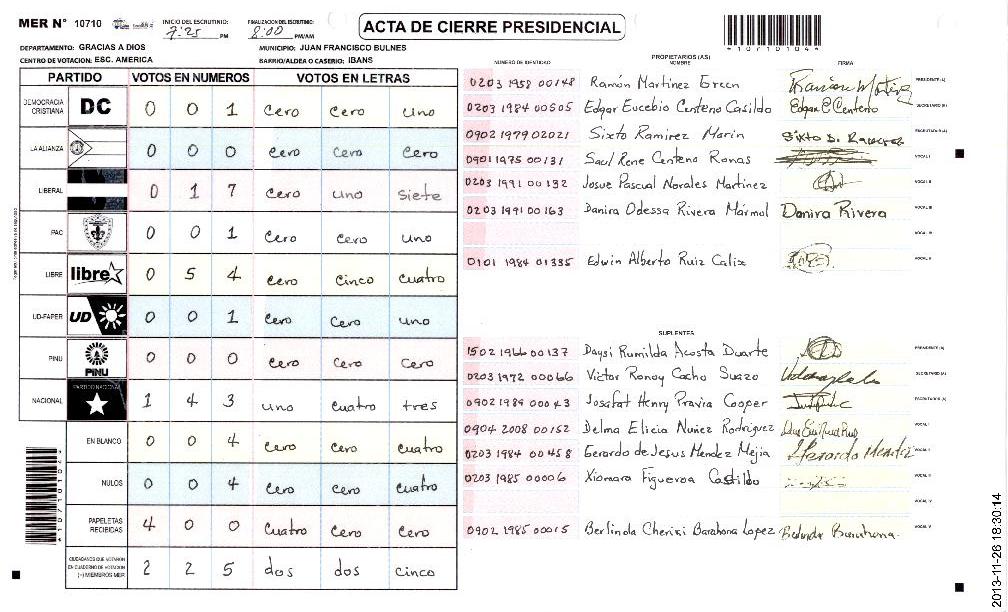 MER N° 10710 INICIO DEL ESCRUTINIO: 7:25 PM FINALIZACION DEL ESCRUTINIO: 8:00 PM/AM
ACTA DE CIERRE PRESIDENCIAL
*10710104*
DEPARTAMENTO: GRACIAS A DIOS MUNICIPIO: JUAN FRANCISCO BULNES
CENTRO DE VOTACION: ESC. AMERICA BARRIO/ALDEA O CASERIO: IBANS
PARTIDO VOTOS EN NUMEROS VOTOS EN LETRAS
DEMOCRACIA CRISTIANA DC 0 0 1 cero cero uno
LA ALIANZA 0 0 0 cero cero cero
LIBERAL 0 1 7 cero uno siete
PAC 0 0 1 cero cero uno
LIBRE libre 0 5 4 cero cinco cuatro
UD-FAPER UD 0 0 1 cero cero uno
PINU PINU 0 0 0 cero cero cero
NACIONAL PARTIDO NACIONAL 1 4 3 uno cuatro tres
EN BLANCO 0 0 4 cero cero cuatro
NULOS 0 0 4 cero cero cuatro
PAPELETAS RECIBIDAS 4 0 0 cuatro cero cero
CIUDADANOS QUE VOTARON EN CUADERNO DE VOTACION (+) MIEMBROS MER 2 2 5 dos dos cinco
PROPIETARIOS (AS)
NUMERO DE IDENTIDAD NOMBRE FIRMA
0203 1958 00148 Ramón Martinez Green PRESIDENTE (A)
0203 1984 00505 Edgar Eucebio Centeno Casildo Edgar E Centeno SECRETARIO (A)
0902 1979 02021 Sixto Ramirez Marin ESCRUTADOR (A)
0901 1975 00131 Saul Rene Centeno Ronas VOCAL I
0203 1991 00132 Josue Pascual Norales Martinez VOCAL II
0203 1991 00163 Danira Odessa Rivera Mármol Danira Rivera VOCAL III
VOCAL IV
0101 1984 01335 Edwin Alberto Ruiz Calix VOCAL V
SUPLENTES
1502 1966 00137 Daysi Rumilda Acosta Duarte PRESIDENTE (A)
0203 1972 00066 Victor Ronoy Cacho Suazo SECRETARIO (A)
0902 1989 00043 Josafat Henry Pravia Cooper ESCRUTADOR (A)
0904 2008 00152 Delma Elicia Nuñez Rodriguez VOCAL I
0203 1984 00458 Gerardo de Jesus Mendez Mejia Gerardo Mendez VOCAL II
0203 1985 00006 Xiomara Figueroa Castildo VOCAL III
VOCAL IV
0902 1985 00015 Berlinda Cheriri Barahona Lopez Barahona VOCAL V
2013-11-26 18:30:14